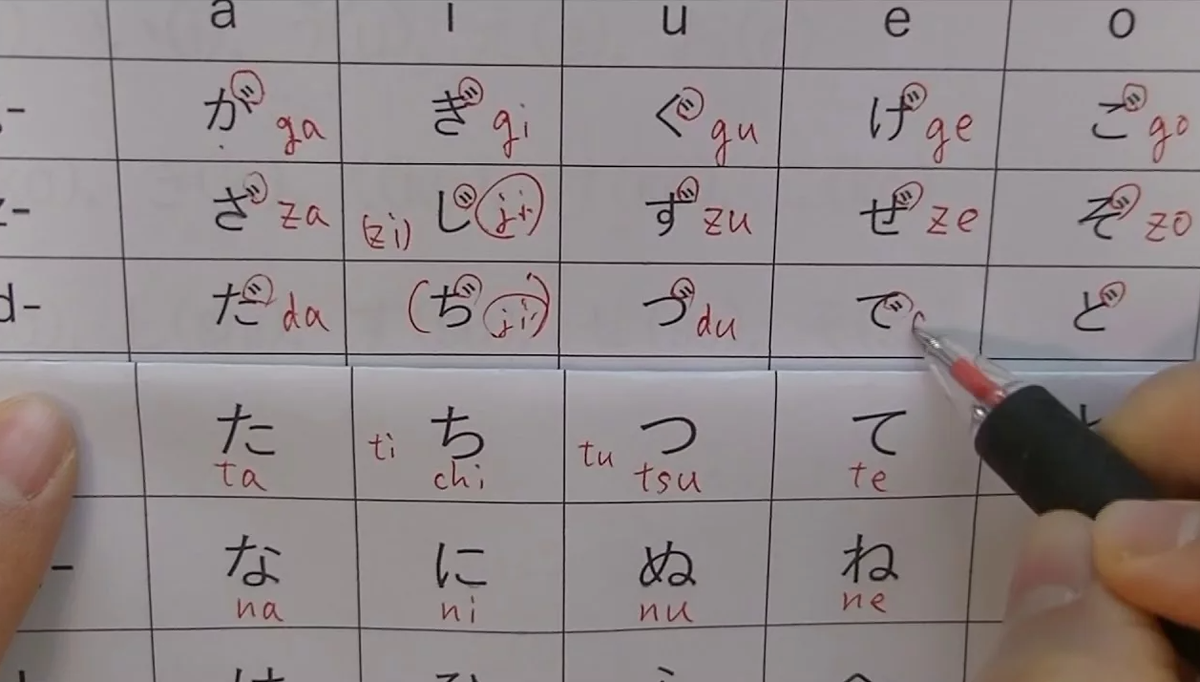 a i u e o
が ga ぎ gi ぐ gu げ ge ご go
z- ざ za (zi) じ (ji) ず zu ぜ ze ぞ zo
d- だ da (ぢ (ji)) づ du で ど
た ち つ て
ta ti chi tu tsu te
な に ぬ ね
na ni nu ne